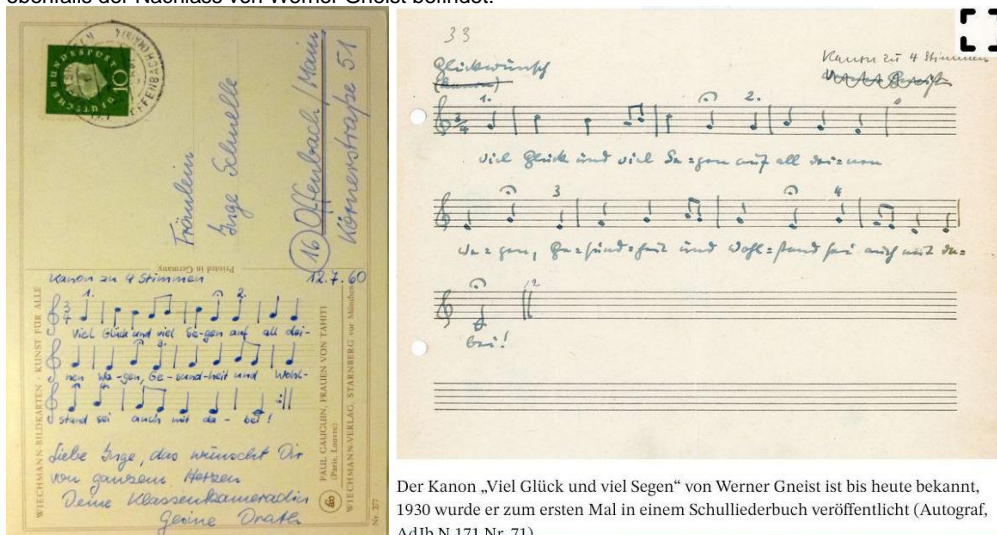 ebenfalls der Nachlass von Werner Gneist befindet.
DEUTSCHE BUNDESPOST
10
OFFENBACH (MAIN)
Fräulein
Inge Schnelle
(16) Offenbach/Main
Körnerstraße 51
Printed in Germany
Kanon zu 4 Stimmen 12.7.60
1. 2.
3/4
Viel Glück und viel Se-gen auf all dei-
3.
nen We-gen, Ge-sund-heit und Wohl-
stand sei auch mit da-bei!
Liebe Inge, das wünscht Dir
von ganzem Herzen
Deine Klassenkameradin
Gesine Drath
WIECHMANN-BILDKARTEN · KUNST FÜR ALLE
PAUL GAUGUIN, FRAUEN VON TAHITI
(Paris, Louvre)
WIECHMANN-VERLAG, STARNBERG vor München
Nr. 277
33
Glückwunsch
(Kanon)
Kanon zu 4 Stimmen
Werner Gneist
1. 2.
3/4
Viel Glück und viel Se=gen auf all dei=nen
3 4
We=gen, Ge=sund=heit und Wohl=stand sei auch mit da=
bei!
Der Kanon „Viel Glück und viel Segen“ von Werner Gneist ist bis heute bekannt,
1930 wurde er zum ersten Mal in einem Schulliederbuch veröffentlicht (Autograf,
AdJb N 171 Nr. 71)